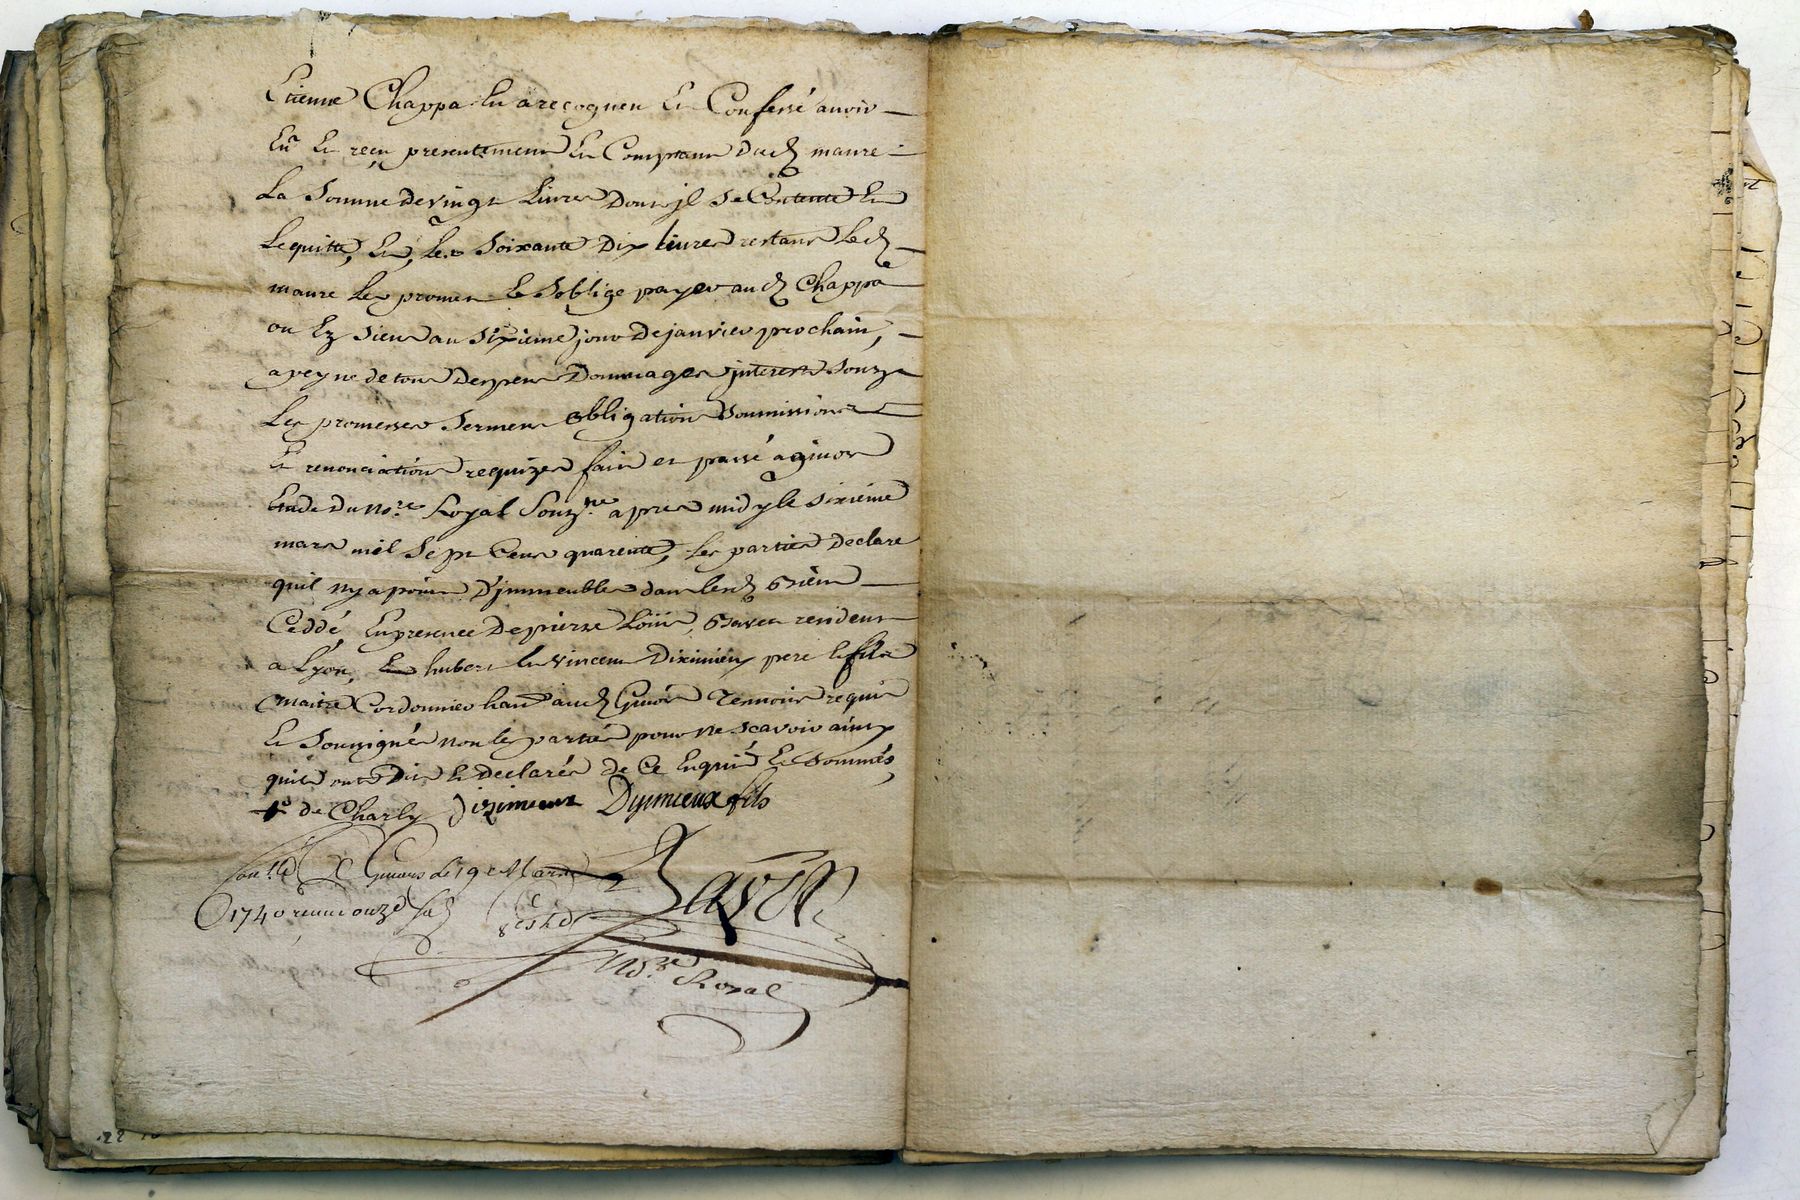 Etienne Chappa En a recogneu Et Confessé avoir
Eu Et reçu presentement En Comptant dud maure
La Somme de vingt Livres Dont jl Se Contente Et
Le quitte, Et, les Soixante Dix livres restant Led
maure les promet Et Soblige payer aud Chappa
ou Ez Siens au Sixieme jour De janvier prochain,
a peyne de tous Despens Dommages jnterest Souz
Les promesses Serment obligation Soumissions
Et renonciations requizes fait et passé a givors
Etude du no.re Royal Souz.né apres midy le Sixieme
mars mil Sept Cens quarente, Les parties Declare
quil ny a point D'jmmeubles dans lesd Biens
Ceddé, En presence De pierre
a Lyon, hubert Et vincent Diximieux pere Et fils
Maitre Cordonnier hant aud Givors Temoins requis
Et Sousignés non les parties pour ne Scavoir ainsy
quils ont Dit Et declarés de Ce Enquis Et Sommés,
de Charly Dizimieux Dyimieux fils
Con.lé A Givors le 19e Mars
1740 reçu onze
Bavin
No.re Royal
22